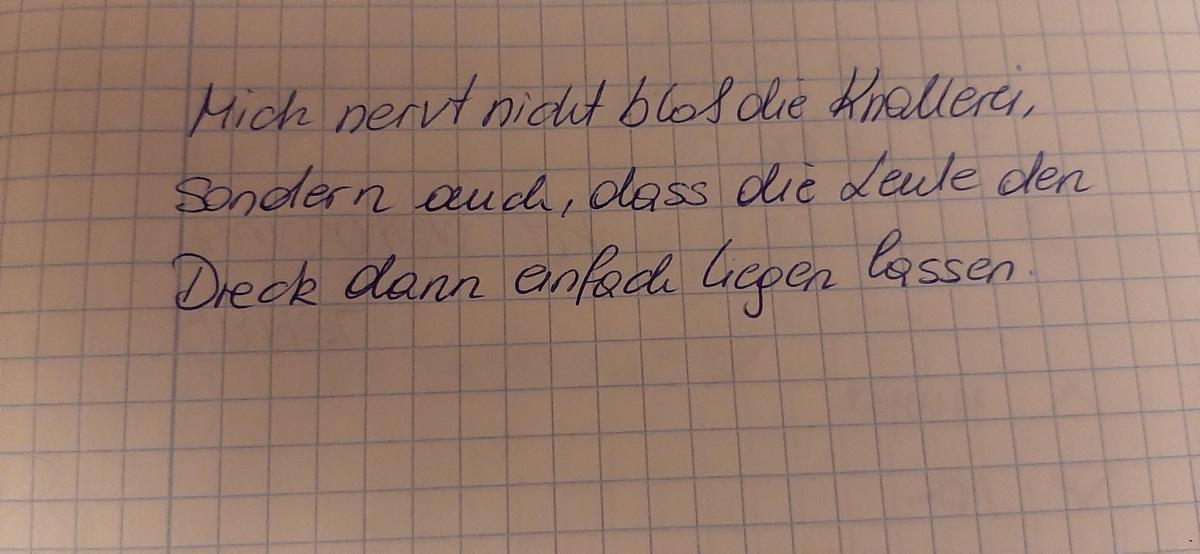 Mich nervt nicht bloß die Knallerei,
sondern auch, dass die Leute den
Dreck dann einfach liegen lassen.